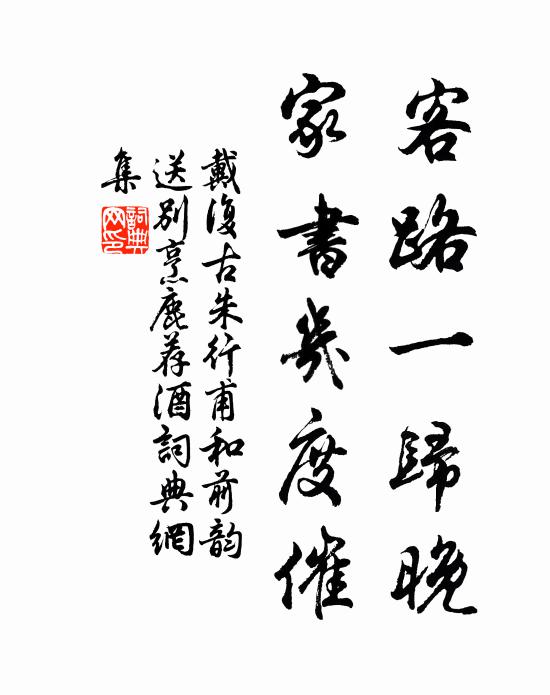 客路一歸晚
家書幾度催
戴復古朱行甫和前韵
送別烹鹿荐酒詞典網
集
詞典
网印